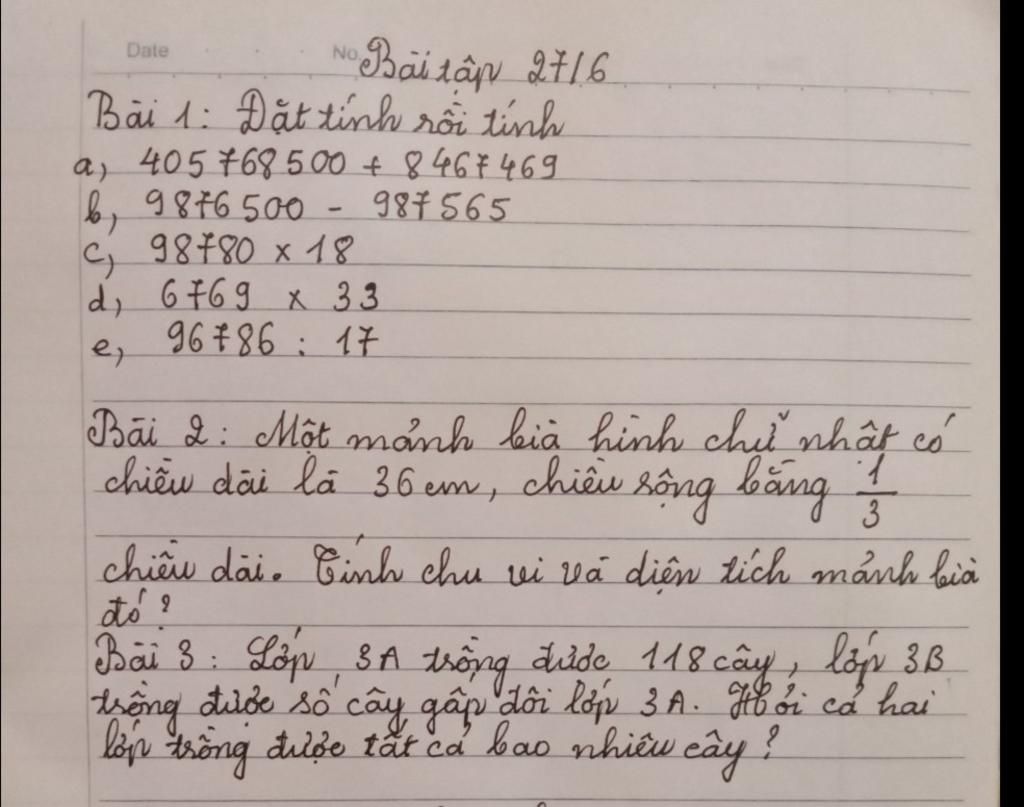 Date No.
Bài tập 27/6
Bài 1: Đặt tính rồi tính
a, 405768500 + 8467469
b, 9876500 - 987565
c, 98780 x 18
d, 6769 x 33
e, 96786 : 17
Bài 2: Một mảnh bìa hình chữ nhật có
chiều dài là 36 cm, chiều rộng bằng 1/3
chiều dài. Tính chu vi và diện tích mảnh bìa
đó?
Bài 3: Lớp 3A trồng được 118 cây, lớp 3B
trồng được số cây gấp đôi lớp 3A. Hỏi cả hai
lớp trồng được tất cả bao nhiêu cây?